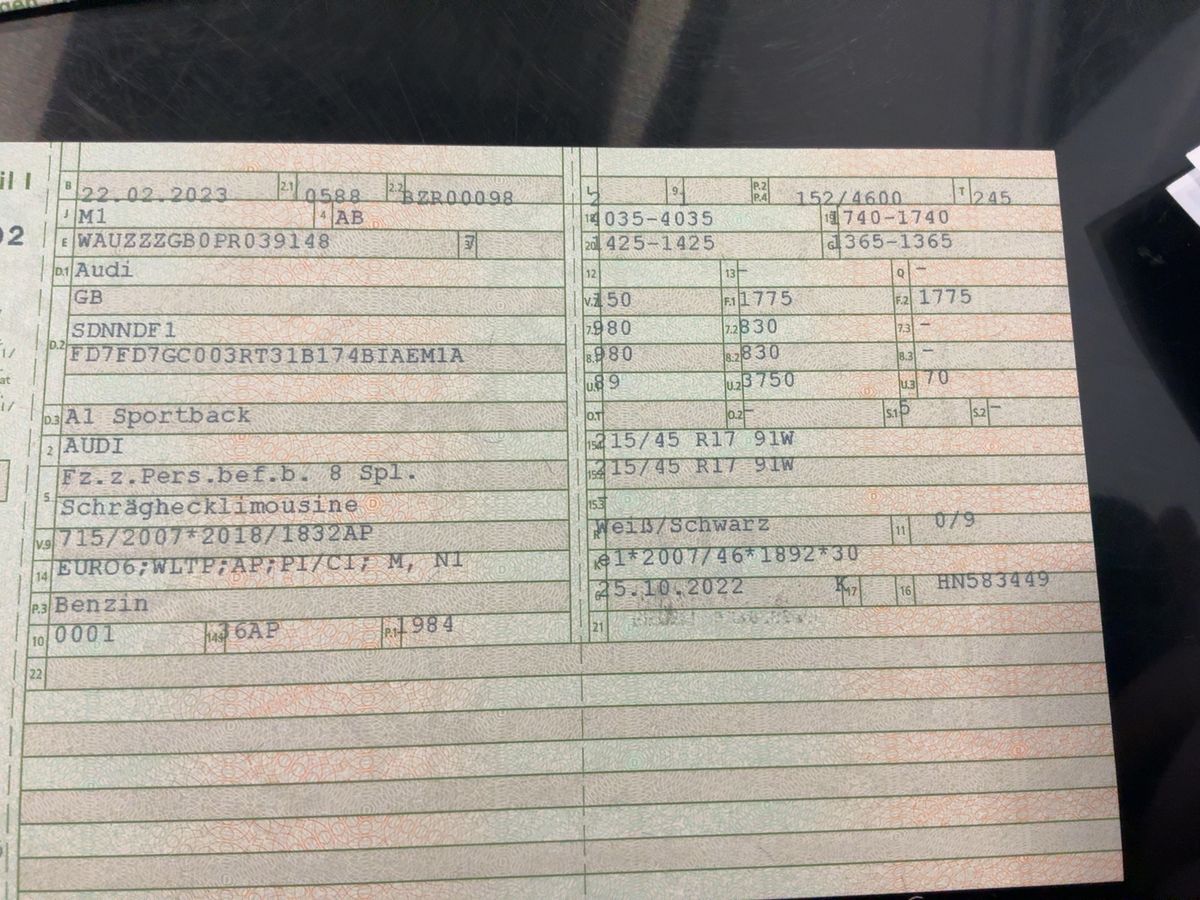 il I
B 22.02.2023 2.1 0588 2.2 BZR00098
J M1 4 AB
E WAUZZZGB0PR039148 3
D.1 Audi
GB
D.2 SDNNDF1
FD7FD7GC003RT31B174BIAEM1A
D.3 A1 Sportback
2 AUDI
Fz.z.Pers.bef.b. 8 Spl.
5 Schräghecklimousine
V.9 715/2007*2018/1832AP
14 EURO6;WLTP;AP;PI/CI; M, N1
P.3 Benzin
10 0001 14.1 36AP P.1 1984
22
L 2 9 1 P.2 P.4 152/4600 T 245
18 4035-4035 19 1740-1740
20 1425-1425 G 1365-1365
12 13 - Q -
V.7 150 F.1 1775 F.2 1775
7.1 980 7.2 830 7.3 -
8.1 980 8.2 830 8.3 -
U.1 89 U.2 3750 U.3 70
O.1 O.2 - S.1 5 S.2 -
15.1 215/45 R17 91W
15.2 215/45 R17 91W
15.3 -
R Weiß/Schwarz 11 0/9
K e1*2007/46*1892*30
6 25.10.2022 17 K 16 HN583449
21